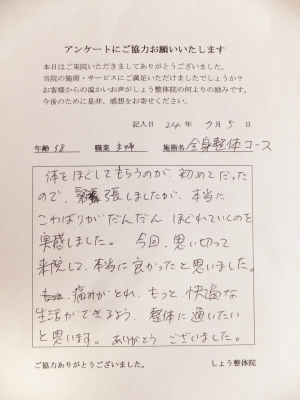 アンケートにご協力お願いいたします
本日はご来院いただきましてありがとうございました。
当院の施術・サービスにご満足いただけましたでしょうか?
お客様からの温かいお声がしょう整体院の何よりの励みです。
今後のために是非、感想をお寄せください。
記入日 24年 7月 5日
年齢 58 職業 主婦 施術名 全身整体コース
体をほぐしてもらうのが、初めてだった
ので、緊張しましたが、本当に
こわばりがだんだん ほぐれていくのを
実感しました。 今回、思い切って
来院して、本当に良かったと思いました。
痛みがとれ、もっと、快適な
生活ができるよう、整体に通いたい
と思います。ありがとう ございました。
ご協力ありがとうございました。 しょう整体院